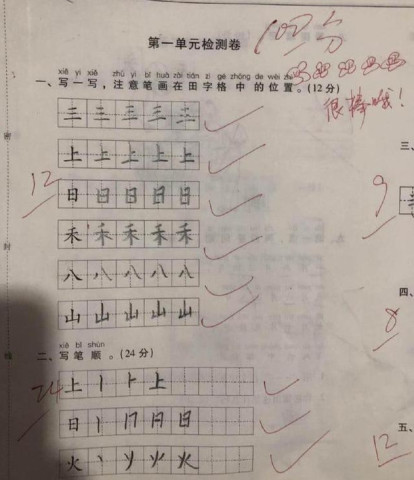 第一单元检测卷
100分
xiě yi xiě zhù yì bǐ huà zài tián zì gé zhōng de wèi zhi
一、写一写，注意笔画在田字格中的位置。(12分)
很棒哦！
三三三三三
上上上上上
12
日日日日日
禾禾禾禾禾
八八八八八
山山山山山
xiě bǐ shùn
二、写笔顺。(24分)
24
上丨⺊上
日丨冂日日
火丶丷火火
三、
9
四、
8
五、
12
密
封
线